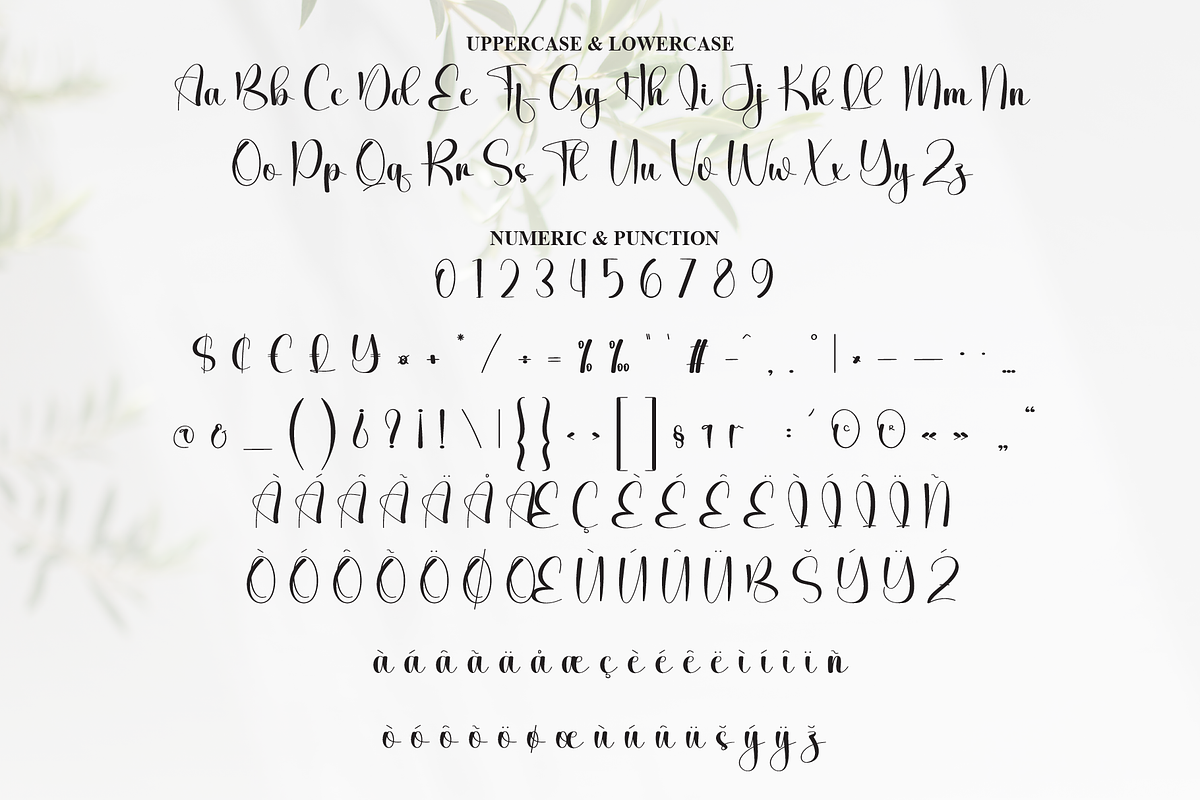 UPPERCASE & LOWERCASE
Aa Bb Cc Dd Ee Ff Gg Hh Ii Jj Kk Ll Mm Nn
Oo Pp Qq Rr Ss Tt Uu Vv Ww Xx Yy Zz
NUMERIC & PUNCTION
0 1 2 3 4 5 6 7 8 9
$ ¢ € £ ¥ ¤ + * / ÷ = % ‰ " ' # - ^ , . ° | × – — · ¨ …
@ & _ ( ) ¿ ? ¡ ! \ | { } ‹ › [ ] § ¶ r : ´ © ® « » „ “
À Á Â Ã Ä Å Æ Ç È É Ê Ë Ì Í Î Ï Ñ
Ò Ó Ô Õ Ö Ø Œ Ù Ú Û Ü B Š Ý Ÿ Ž
à á â ã ä å æ ç è é ê ë ì í î ï ñ
ò ó ô õ ö ø œ ù ú û ü š ý ÿ ž